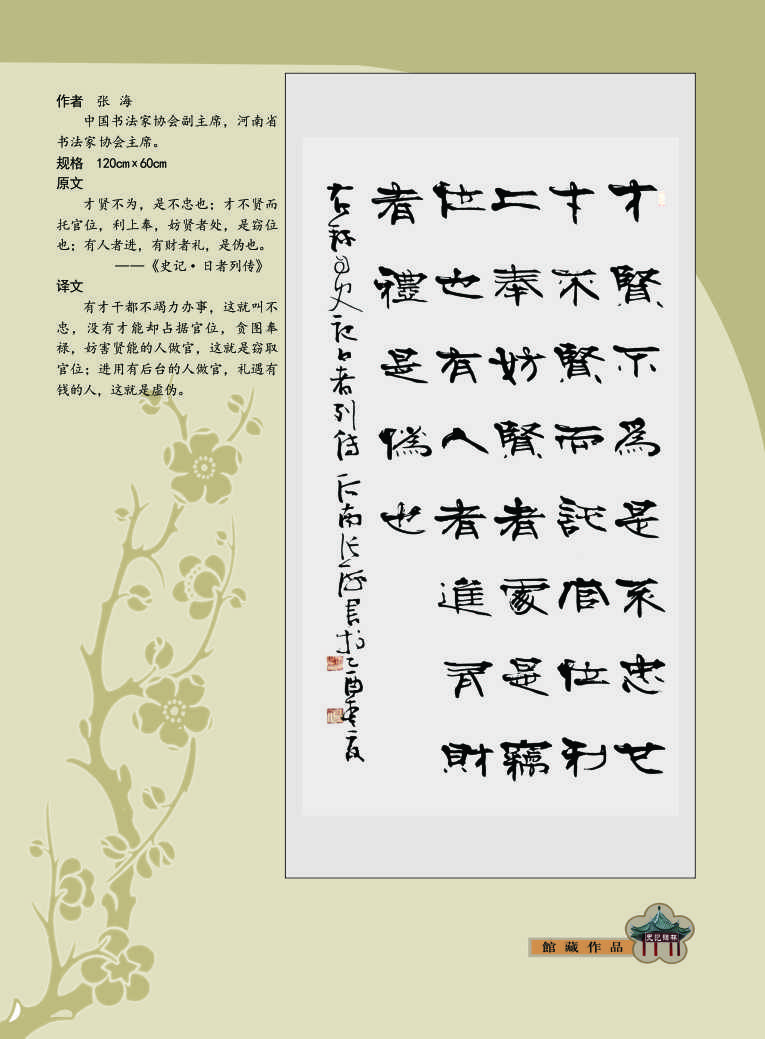 作者 张 海
中国书法家协会副主席，河南省
书法家协会主席。
规格 120cm×60cm
原文
才贤不为，是不忠也；才不贤而
托官位，利上奉，妨贤者处，是窃位
也；有人者进，有财者礼，是伪也。
——《史记·日者列传》
译文
有才干都不竭力办事，这就叫不
忠，没有才能却占据官位，贪图奉
禄，妨害贤能的人做官，这就是窃取
官位；进用有后台的人做官，礼遇有
钱的人，这就是虚伪。
才賢不為是不忠也
才不賢而託官位利
上奉妨賢者處是竊
位也有人者進有財
者禮是偽也
史记日者列傳 河南张海書於乙酉
館藏作品
史記碑林